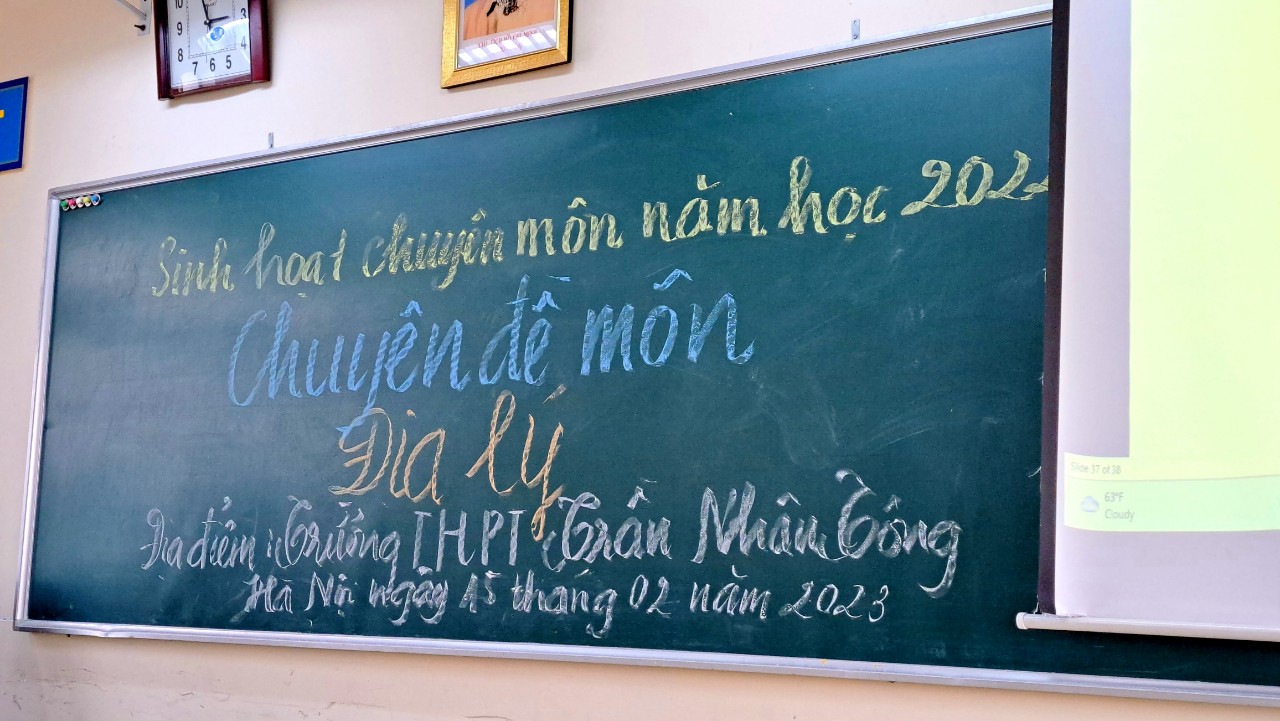 10
9
8
7
6
5
4
3
Sinh hoạt chuyên môn năm học 2022
Chuyên đề môn
Địa lý
Địa điểm: Trường THPT Trần Nhân Tông
Hà Nội ngày 15 tháng 02 năm 2023
Slide 37 of 38
63°F
Cloudy